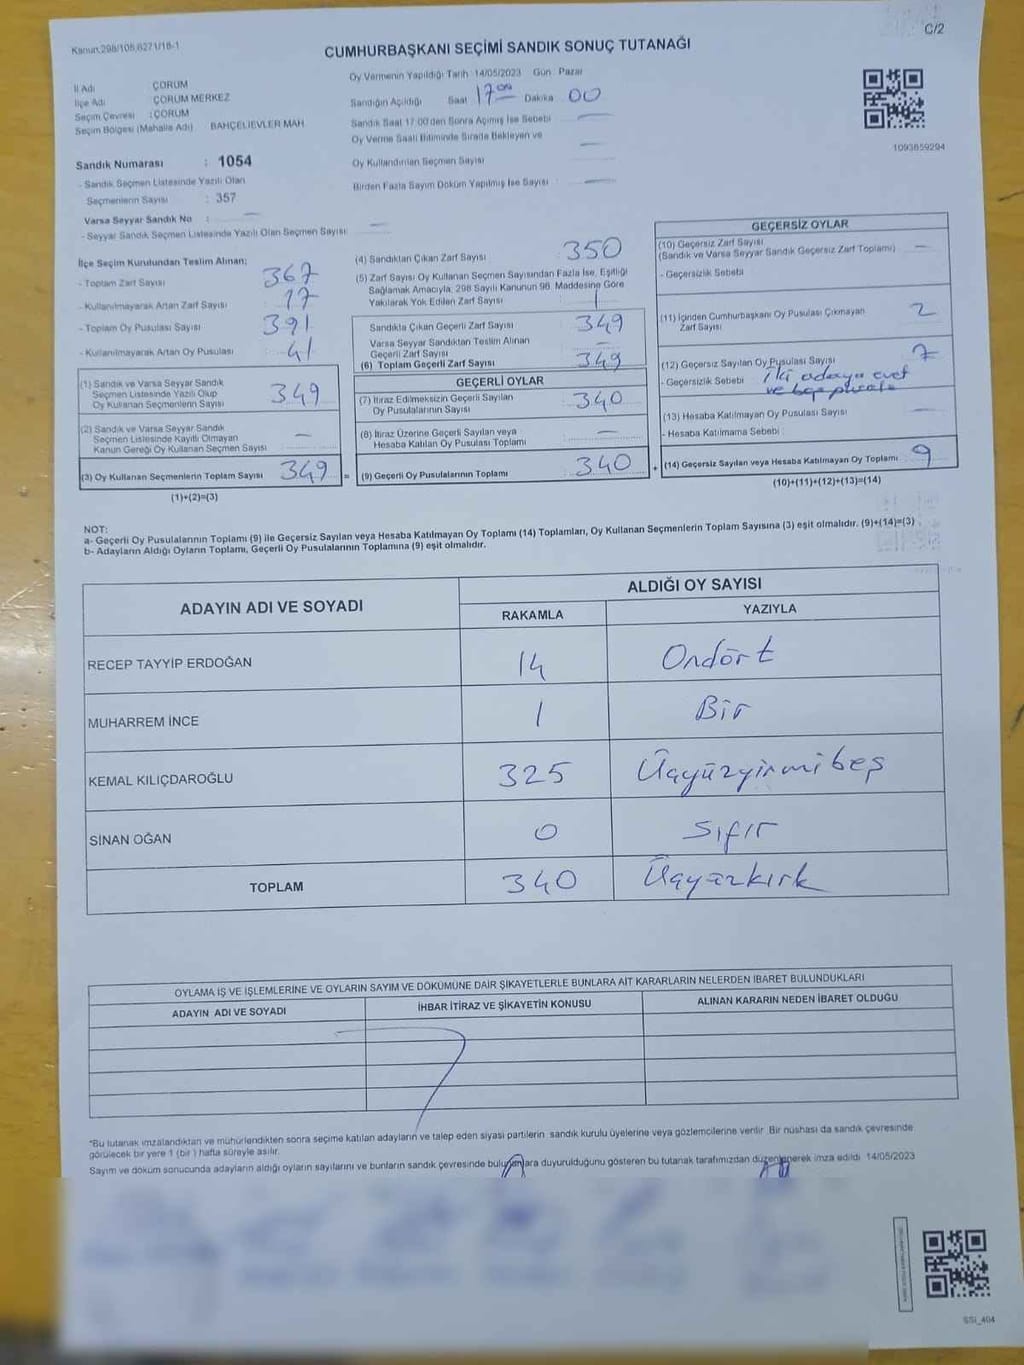 Kanun:298/105,6271/18-1
C/2
CUMHURBAŞKANI SEÇİMİ SANDIK SONUÇ TUTANAĞI
Oy Vermenin Yapıldığı Tarih 14/05/2023 Gün Pazar
İl Adı ÇORUM
İlçe Adı ÇORUM MERKEZ
Seçim Çevresi : ÇORUM
Seçim Bölgesi (Mahalle Adı) BAHÇELİEVLER MAH.
Sandığın Açıldığı Saat 17 00 Dakika 00
Sandık Saat 17:00'den Sonra Açılmış İse Sebebi
Oy Verme Saati Bitiminde Sırada Bekleyen ve
Oy Kullandırılan Seçmen Sayısı
Birden Fazla Sayım Döküm Yapılmış İse Sayısı
1093859294
Sandık Numarası : 1054
- Sandık Seçmen Listesinde Yazılı Olan
Seçmenlerin Sayısı : 357
Varsa Seyyar Sandık No :
- Seyyar Sandık Seçmen Listesinde Yazılı Olan Seçmen Sayısı:
İlçe Seçim Kurulundan Teslim Alınan:
- Toplam Zarf Sayısı 367
- Kullanılmayarak Artan Zarf Sayısı 17
- Toplam Oy Pusulası Sayısı 391
- Kullanılmayarak Artan Oy Pusulası 41
(1) Sandık ve Varsa Seyyar Sandık
Seçmen Listesinde Yazılı Olup
Oy Kullanan Seçmenlerin Sayısı 349
(2) Sandık ve Varsa Seyyar Sandık
Seçmen Listesinde Kayıtlı Olmayan
Kanun Gereği Oy Kullanan Seçmen Sayısı –
(3) Oy Kullanan Seçmenlerin Toplam Sayısı 349 =
(1)+(2)=(3)
(4) Sandıktan Çıkan Zarf Sayısı 350
(5) Zarf Sayısı Oy Kullanan Seçmen Sayısından Fazla İse, Eşitliği
Sağlamak Amacıyla, 298 Sayılı Kanunun 98. Maddesine Göre
Yakılarak Yok Edilen Zarf Sayısı 1
Sandıkta Çıkan Geçerli Zarf Sayısı 349
Varsa Seyyar Sandıktan Teslim Alınan
Geçerli Zarf Sayısı –
(6) Toplam Geçerli Zarf Sayısı 349
GEÇERLİ OYLAR
(7) İtiraz Edilmeksizin Geçerli Sayılan
Oy Pusulalarının Sayısı 340
(8) İtiraz Üzerine Geçerli Sayılan veya
Hesaba Katılan Oy Pusulası Toplamı –
(9) Geçerli Oy Pusulalarının Toplamı 340 +
GEÇERSİZ OYLAR
(10) Geçersiz Zarf Sayısı
(Sandık ve Varsa Seyyar Sandık Geçersiz Zarf Toplamı) –
- Geçersizlik Sebebi
(11) İçinden Cumhurbaşkanı Oy Pusulası Çıkmayan
Zarf Sayısı 2
(12) Geçersiz Sayılan Oy Pusulası Sayısı 7
- Geçersizlik Sebebi : İki adaya evet
ve boş pusula
(13) Hesaba Katılmayan Oy Pusulası Sayısı –
- Hesaba Katılmama Sebebi :
(14) Geçersiz Sayılan veya Hesaba Katılmayan Oy Toplamı 9
(10)+(11)+(12)+(13)=(14)
NOT:
a- Geçerli Oy Pusulalarının Toplamı (9) ile Geçersiz Sayılan veya Hesaba Katılmayan Oy Toplamı (14) Toplamları, Oy Kullanan Seçmenlerin Toplam Sayısına (3) eşit olmalıdır. (9)+(14)=(3)
b- Adayların Aldığı Oyların Toplamı, Geçerli Oy Pusulalarının Toplamına (9) eşit olmalıdır.
ADAYIN ADI VE SOYADI
ALDIĞI OY SAYISI
RAKAMLA YAZIYLA
RECEP TAYYİP ERDOĞAN 14 Ondört
MUHARREM İNCE 1 Bir
KEMAL KILIÇDAROĞLU 325 Üçyüzyirmibeş
SİNAN OĞAN 0 Sıfır
TOPLAM 340 Üçyüzkırk
OYLAMA İŞ VE İŞLEMLERİNE VE OYLARIN SAYIM VE DÖKÜMÜNE DAİR ŞİKAYETLERLE BUNLARA AİT KARARLARIN NELERDEN İBARET BULUNDUKLARI
ADAYIN ADI VE SOYADI İHBAR İTİRAZ VE ŞİKAYETİN KONUSU ALINAN KARARIN NEDEN İBARET OLDUĞU
*Bu tutanak imzalandıktan ve mühürlendikten sonra seçime katılan adayların ve talep eden siyasi partilerin sandık kurulu üyelerine veya gözlemcilerine verilir. Bir nüshası da sandık çevresinde
görülecek bir yere 1 (bir) hafta süreyle asılır.
Sayım ve döküm sonucunda adayların aldığı oyların sayılarını ve bunların sandık çevresinde bulunanlara duyurulduğunu gösteren bu tutanak tarafımızdan düzenlenerek imza edildi. 14/05/2023
SSİ_404